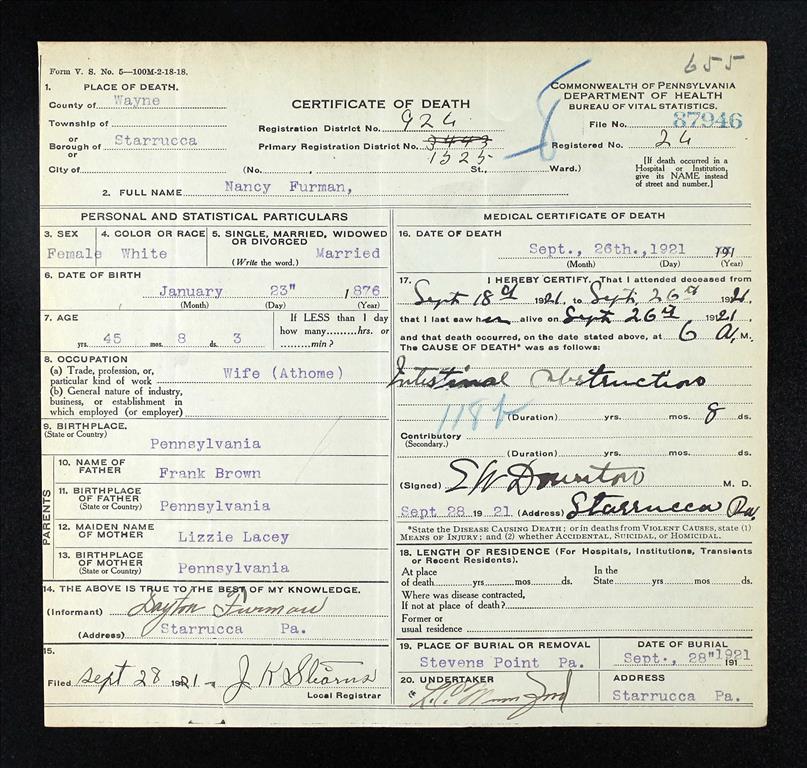 655
Form V. S. No. 5—100M-2-18-18.
1. PLACE OF DEATH.
County of Wayne
Township of
or
Borough of Starrucca
or
City of (No. , St., Ward.)
CERTIFICATE OF DEATH
Registration District No. 924
Primary Registration District No. 3443
1525
COMMONWEALTH OF PENNSYLVANIA
DEPARTMENT OF HEALTH
BUREAU OF VITAL STATISTICS.
File No. 87946
Registered No. 24
[If death occurred in a
Hospital or Institution,
give its NAME instead
of street and number.]
2. FULL NAME Nancy Furman,
PERSONAL AND STATISTICAL PARTICULARS
3. SEX
Female
4. COLOR OR RACE
White
5. SINGLE, MARRIED, WIDOWED
OR DIVORCED
(Write the word.) Married
6. DATE OF BIRTH
January 23" 1876
(Month) (Day) (Year)
7. AGE
45 yrs. 8 mos. 3 ds.
If LESS than 1 day
how many.........hrs. or
.........min?
8. OCCUPATION
(a) Trade, profession, or,
particular kind of work Wife (Athome)
(b) General nature of industry,
business, or establishment in
which employed (or employer)
9. BIRTHPLACE
(State or Country)
Pennsylvania
PARENTS
10. NAME OF
FATHER Frank Brown
11. BIRTHPLACE
OF FATHER
(State or Country) Pennsylvania
12. MAIDEN NAME
OF MOTHER Lizzie Lacey
13. BIRTHPLACE
OF MOTHER
(State or Country) Pennsylvania
14. THE ABOVE IS TRUE TO THE BEST OF MY KNOWLEDGE.
(Informant) Dayton Furman
(Address) Starrucca Pa.
15.
Filed Sept 28 1921 J K Stearns
Local Registrar
MEDICAL CERTIFICATE OF DEATH
16. DATE OF DEATH
Sept., 26th.,1921 191
(Month) (Day) (Year)
17. I HEREBY CERTIFY, That I attended deceased from
Sept 18th 1921, to Sept. 26th 1921
that I last saw her alive on Sept 26th 1921,
and that death occurred, on the date stated above, at 6 A. M.
The CAUSE OF DEATH* was as follows:
Intestinal obstruction
118b
(Duration) yrs. mos. 8 ds.
Contributory
(Secondary.)
(Duration) yrs. mos. ds.
(Signed) E W Downton M. D.
Sept 28 1921 (Address) Starrucca Pa.
*State the DISEASE CAUSING DEATH; or in deaths from VIOLENT CAUSES, state (1)
MEANS OF INJURY; and (2) whether ACCIDENTAL, SUICIDAL, or HOMICIDAL.
18. LENGTH OF RESIDENCE (For Hospitals, Institutions, Transients
or Recent Residents).
At place
of death yrs. mos. ds.
In the
State yrs. mos. ds.
Where was disease contracted,
If not at place of death?
Former or
usual residence
19. PLACE OF BURIAL OR REMOVAL
Stevens Point Pa.
DATE OF BURIAL
Sept., 28"1921 191
20. UNDERTAKER
ADDRESS
Starrucca Pa.